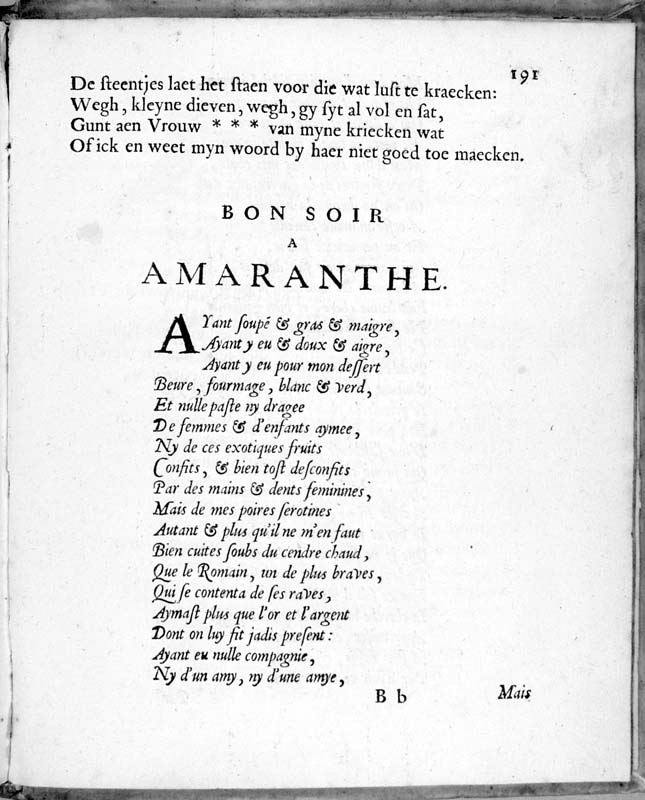 191
De ſteentjes laet het ſtaen voor die wat luſt te kraecken:
Wegh, kleyne dieven, wegh, gy ſyt al vol en ſat,
Gunt aen Vrouw * * * van myne kriecken wat
Of ick en weet myn woord by haer niet goed toe maecken.
BON SOIR
A
AMARANTHE.
AYant ſoupé & gras & maigre,
Ayant y eu & doux & aigre,
Ayant y eu pour mon deſſert
Beure, fourmage, blanc & verd,
Et nulle paſte ny dragee
De femmes & d'enfants aymee,
Ny de ces exotiques fruits
Confits, & bien toſt desconfits
Par des mains & dents feminines,
Mais de mes poires ſerotines
Autant & plus qu'il ne m'en faut
Bien cuites ſoubs du cendre chaud,
Que le Romain, un de plus braves,
Qui ſe contenta de ſes raves,
Aymaſt plus que l'or et l'argent
Dont on luy fit jadis preſent:
Ayant eu nulle compagnie,
Ny d'un amy, ny d'une amye,
B b
Mais